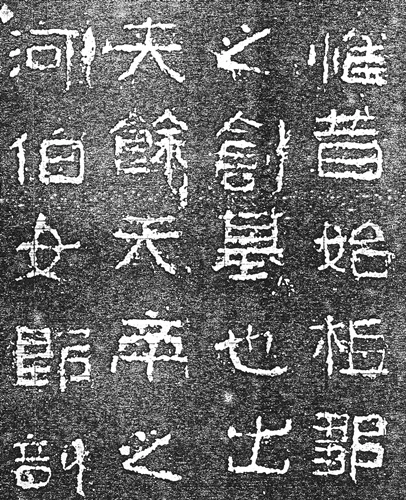 惟昔始祖鄒
之創基也出
夫餘天帝之
河伯女郎剖